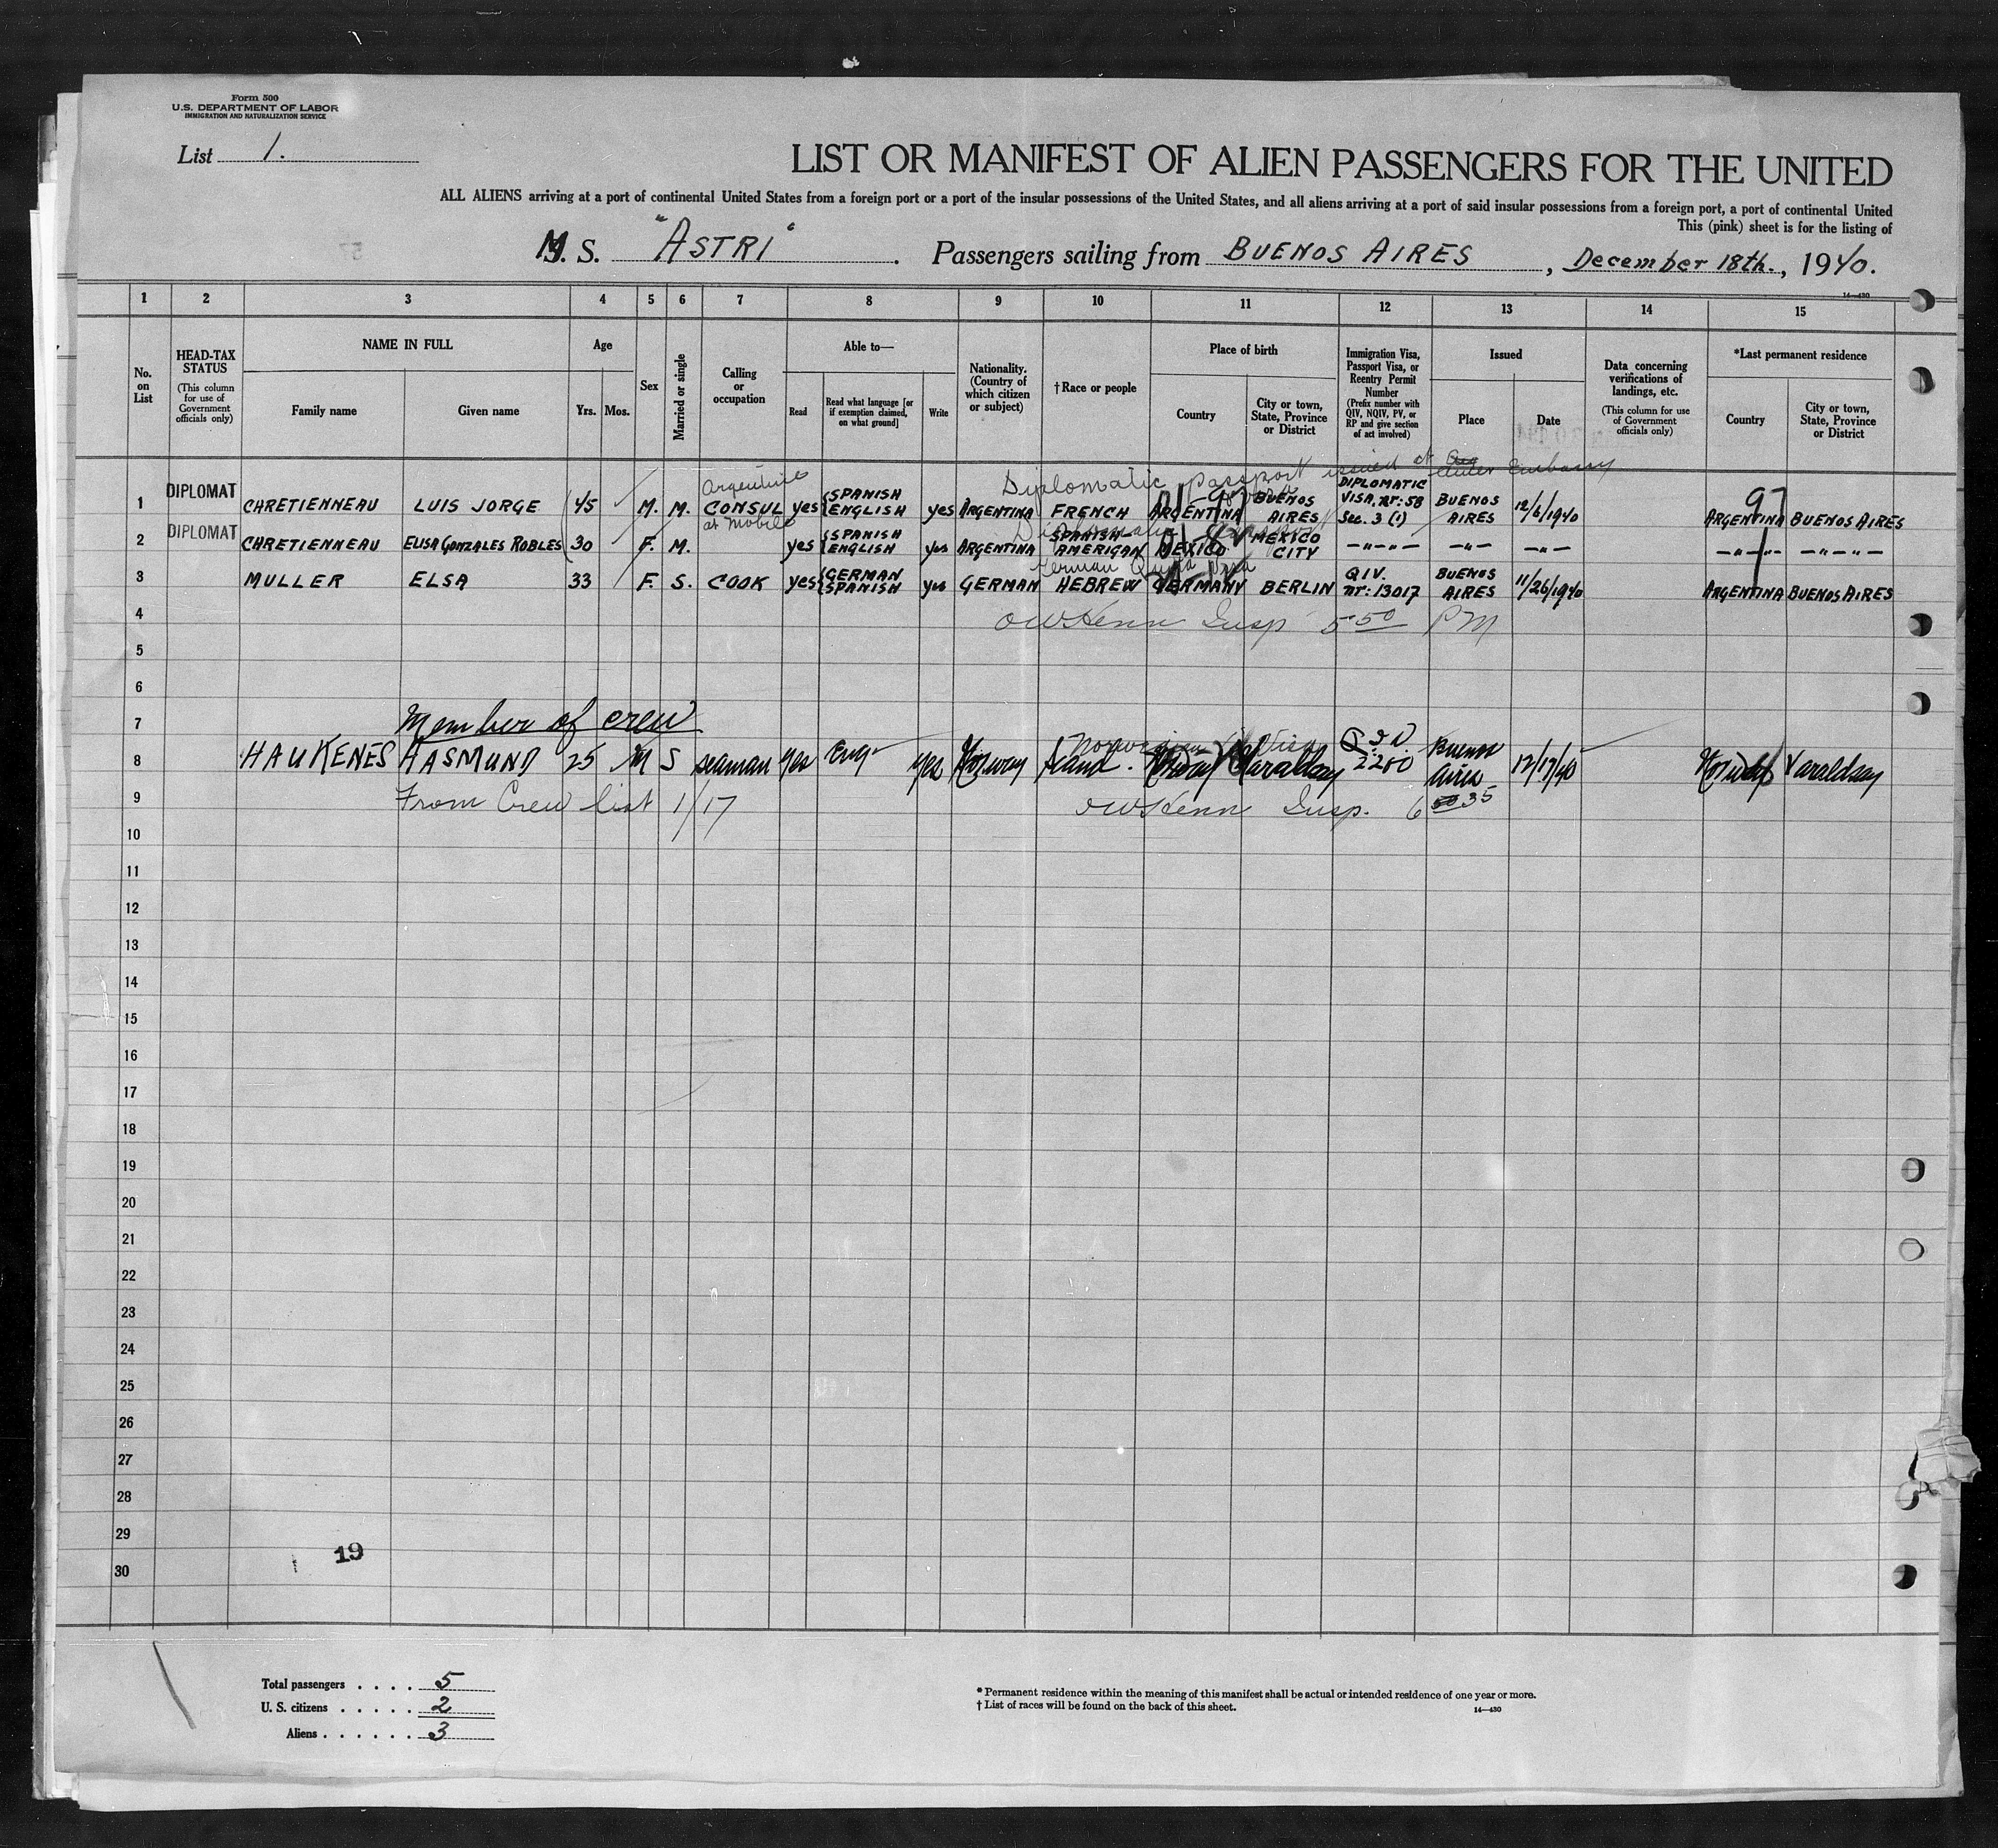 Form 500
U.S. DEPARTMENT OF LABOR
IMMIGRATION AND NATURALIZATION SERVICE
List 1.
LIST OR MANIFEST OF ALIEN PASSENGERS FOR THE UNITED
ALL ALIENS arriving at a port of continental United States from a foreign port or a port of the insular possessions of the United States, and all aliens arriving at a port of said insular possessions from a foreign port, a port of continental United
This (pink) sheet is for the listing of
M. S. "ASTRI" . Passengers sailing from BUENOS AIRES , December 18th., 1940.
14—430
1 2 3 4 5 6 7 8 9 10 11 12 13 14 15
No. on List
HEAD-TAX STATUS (This column for use of Government officials only)
NAME IN FULL
Family name Given name
Age
Yrs. Mos.
Sex
Married or single
Calling or occupation
Able to—
Read
Read what language [or if exemption claimed, on what ground]
Write
Nationality. (Country of which citizen or subject)
† Race or people
Place of birth
Country
City or town, State, Province or District
Immigration Visa, Passport Visa, or Reentry Permit Number (Prefix number with QIV, NQIV, PV, or RP and give section of act involved)
Issued
Place Date
Data concerning verifications of landings, etc. (This column for use of Government officials only)
*Last permanent residence
Country
City or town, State, Province or District
Argentine Diplomatic Passport issued at Embassy
1 DIPLOMAT CHRETIENNEAU LUIS JORGE 45 M. M. CONSUL yes {SPANISH ENGLISH yes ARGENTINA FRENCH ARGENTINA BUENOS AIRES DIPLOMATIC VISA, nr: 58 Sec. 3 (1) BUENOS AIRES 12/6/1940 ARGENTINA BUENOS AIRES
at Mobile
2 DIPLOMAT CHRETIENNEAU ELISA GONZALES ROBLES 30 F. M. yes {SPANISH ENGLISH yes ARGENTINA SPANISH-AMERICAN MEXICO MEXICO CITY —"—"— —"— —"— —"—"— —"—"—
German Quota Visa
3 MULLER ELSA 33 F. S. COOK yes {GERMAN SPANISH yes GERMAN HEBREW GERMANY BERLIN QIV. nr: 13017 BUENOS AIRES 11/26/1940 ARGENTINA BUENOS AIRES
4 Insp 5 50 PM
5
6
7 Member of crew
Norwegian Visa
8 HAUKENES AASMUND 25 M S seaman yes Eng yes Norway Scand. Norway Varaldsoy 2280 Buenos Aires 12/17/40 Norway Varaldsoy
9 From Crew list 1/17 Insp. 6 35
10
11
12
13
14
15
16
17
18
19
20
21
22
23
24
25
26
27
28
29
30
19
Total passengers . . . . 5
U. S. citizens . . . . . 2
Aliens . . . . . . 3
* Permanent residence within the meaning of this manifest shall be actual or intended residence of one year or more.
† List of races will be found on the back of this sheet.
14—430